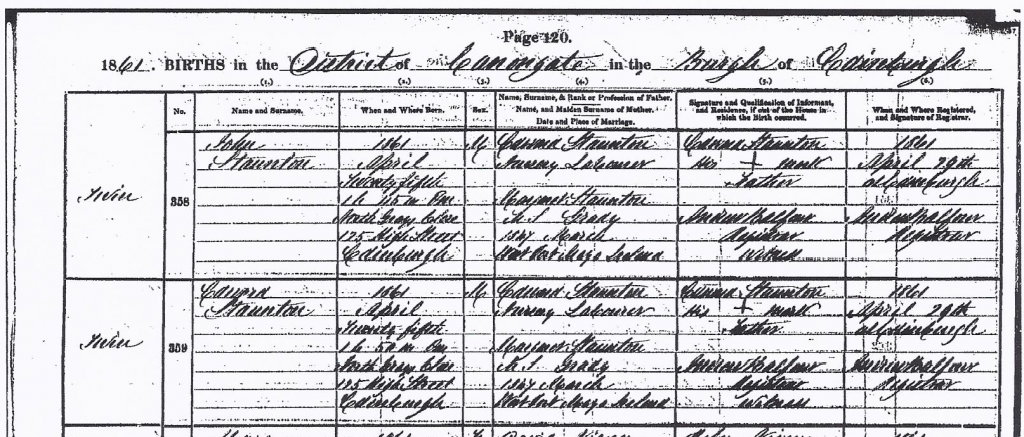 Page 120.
1861. BIRTHS in the District of Canongate in the Burgh of Edinburgh
(1.) (2.) (3.) (4.) (5.) (6.)
No. Name and Surname. When and Where Born. Sex. Name, Surname, & Rank or Profession of Father. Name, and Maiden Surname of Mother. Date and Place of Marriage. Signature and Qualification of Informant, and Residence, if out of the House in which the Birth occurred. When and Where Registered, and Signature of Registrar.
Twin
358
John
Staunton
1861
April
Twenty fifth
1 h. 45 m.
North Grays Close
125 High Street
Edinburgh
M
Edward Staunton
Labourer
Margaret Staunton
M. S. Grady
1847 March
Mayo Ireland
Edward Staunton
His + mark
Father
Andrew Balfour
Registrar
witness
1861
April 29th
at Edinburgh
Andrew Balfour
Registrar
Twin
359
Edward
Staunton
1861
April
Twenty fifth
1 h. 50 m.
North Grays Close
125 High Street
Edinburgh
M
Edward Staunton
Labourer
Margaret Staunton
M. S. Grady
1847 March
Mayo Ireland
Edward Staunton
His + mark
Father
Andrew Balfour
Registrar
witness
1861
April 29th
at Edinburgh
Andrew Balfour
Registrar